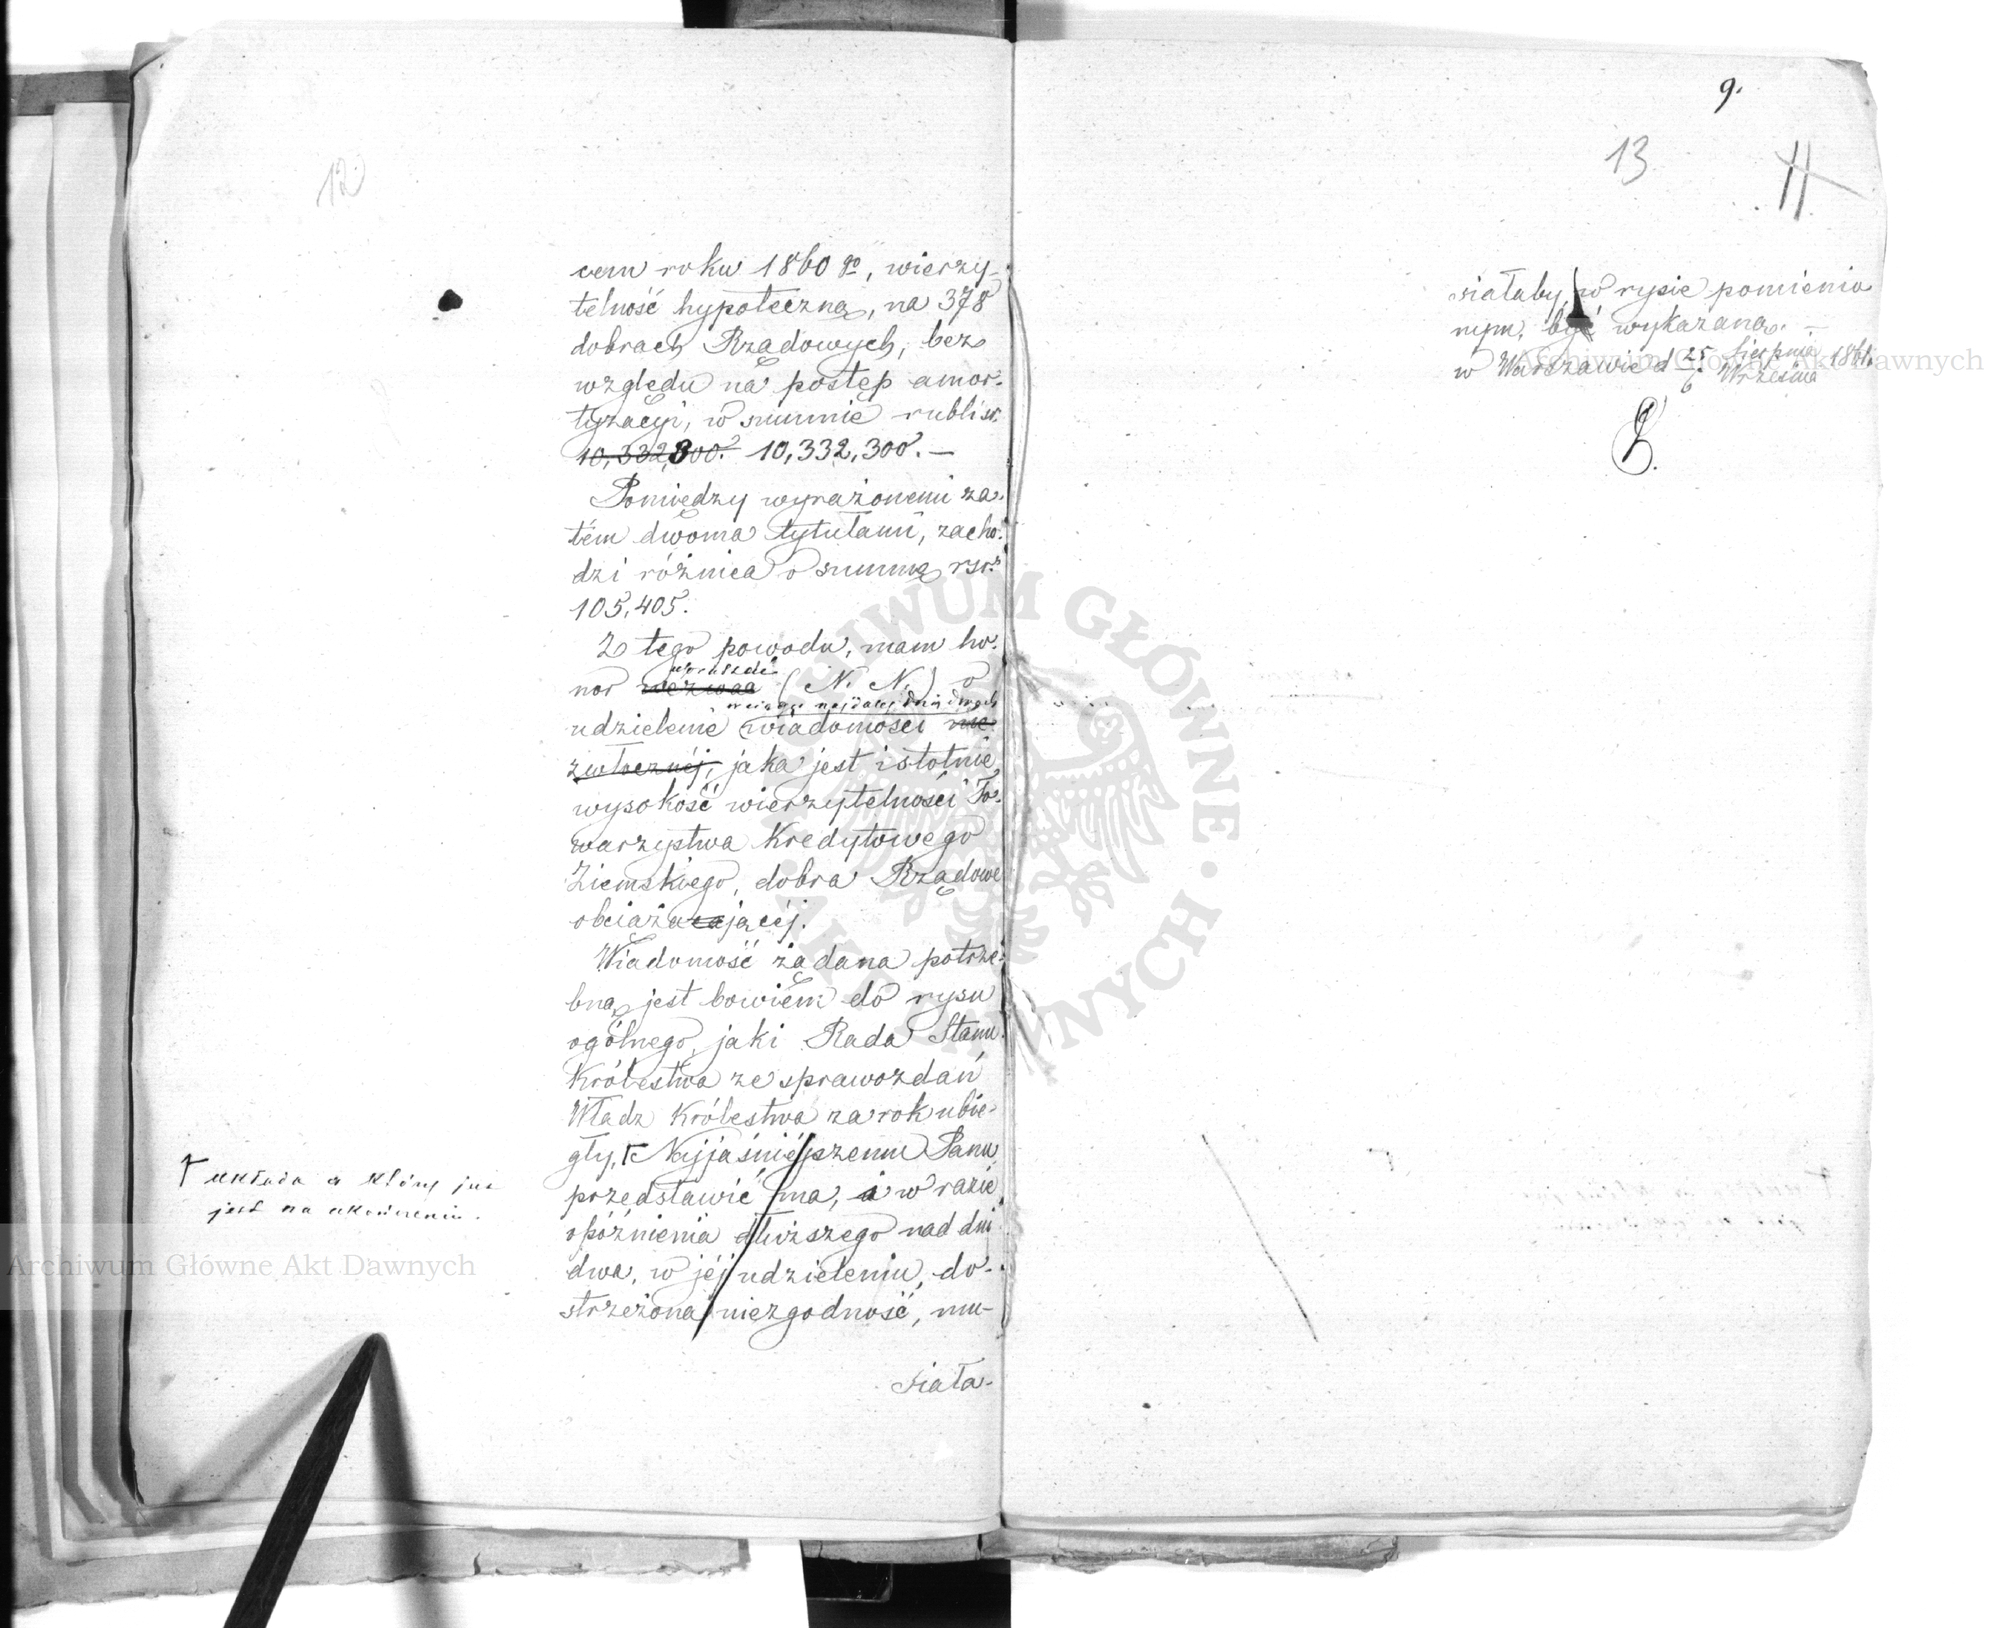 12
cem roku 1860 go, wierzy-
telność hypoteczną, na 378
dobrach Rządowych, bez
względu na postęp amor-
tyzacyi, w summie rubli sr.
10,332,300. 10,332,300. —
Pomiędzy wyrażonemi za-
tém dwoma tytułami, zacho-
dzi różnica o summę rsr.
105,405.
Z tego powodu, mam ho-
upraszać
nor wezwać (N. N.) o
w ciągu najdalej dni dwóch
udzielenie wiadomości nie
zwłocznéj, jaka jest istotnie
wysokość wierzytelności To-
warzystwa Kredytowego
Ziemskiego, dobra Rządowe
obciążającéj.
Wiadomość żądana potrze-
bną jest bowiem do rysu
ogólnego, jaki Rada Stanu
Królestwa ze sprawozdań
Władz Królestwa za rok ubie-
gły, Najjaśniejszemu Panu
przedstawić ma, i w razie
opóźnienia dłuższego nad dni
dwa, w jéj udzieleniu, do-
strzeżona niezgodność, mu-
siała-
układa a który już
jest na ukończeniu.
9.
13
11
siałaby, w rysie pomienio
nym, być wykazaną. —
w Warszawie d 25 Sierpnia 1861.
6 Września
Archiwum Główne Akt Dawnych
Archiwum Główne Akt Dawnych
ARCHIWUM GŁÓWNE · AKT DAWNYCH ·